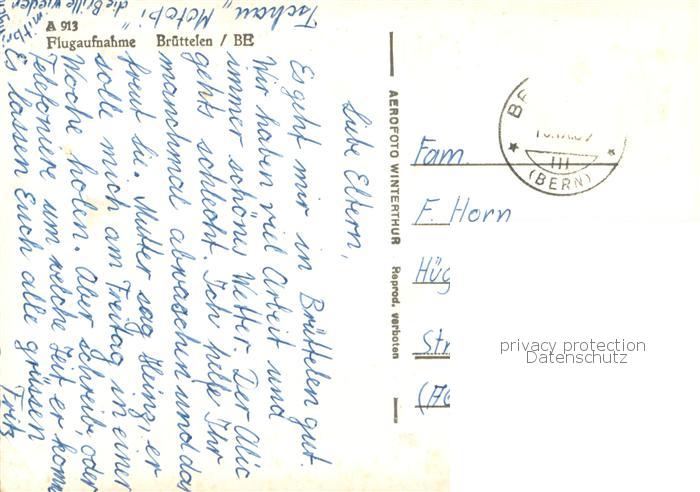 A 913
Flugaufnahme Brüttelen / BE
Liebe Eltern,
Es geht mir in Brüttelen gut.
Wir haben viel Arbeit und
immer schönes Wetter. Der Alic
gehts schlecht. Ich helfe Ihr
manchmal abwaschen und da
freut sie. Mutter sag Heinz, er
solle mich am Freitag in einer
Woche holen. Aber schreib, oder
Telefoniere um welche Zeit er komm
Es lassen Euch alle grüssen
Fritz
Tschau
die Brille wieder
AEROFOTO WINTERTHUR Reprod. verboten
III
(BERN)
Fam.
F. Horn
Hüg
Str
privacy protection
Datenschutz